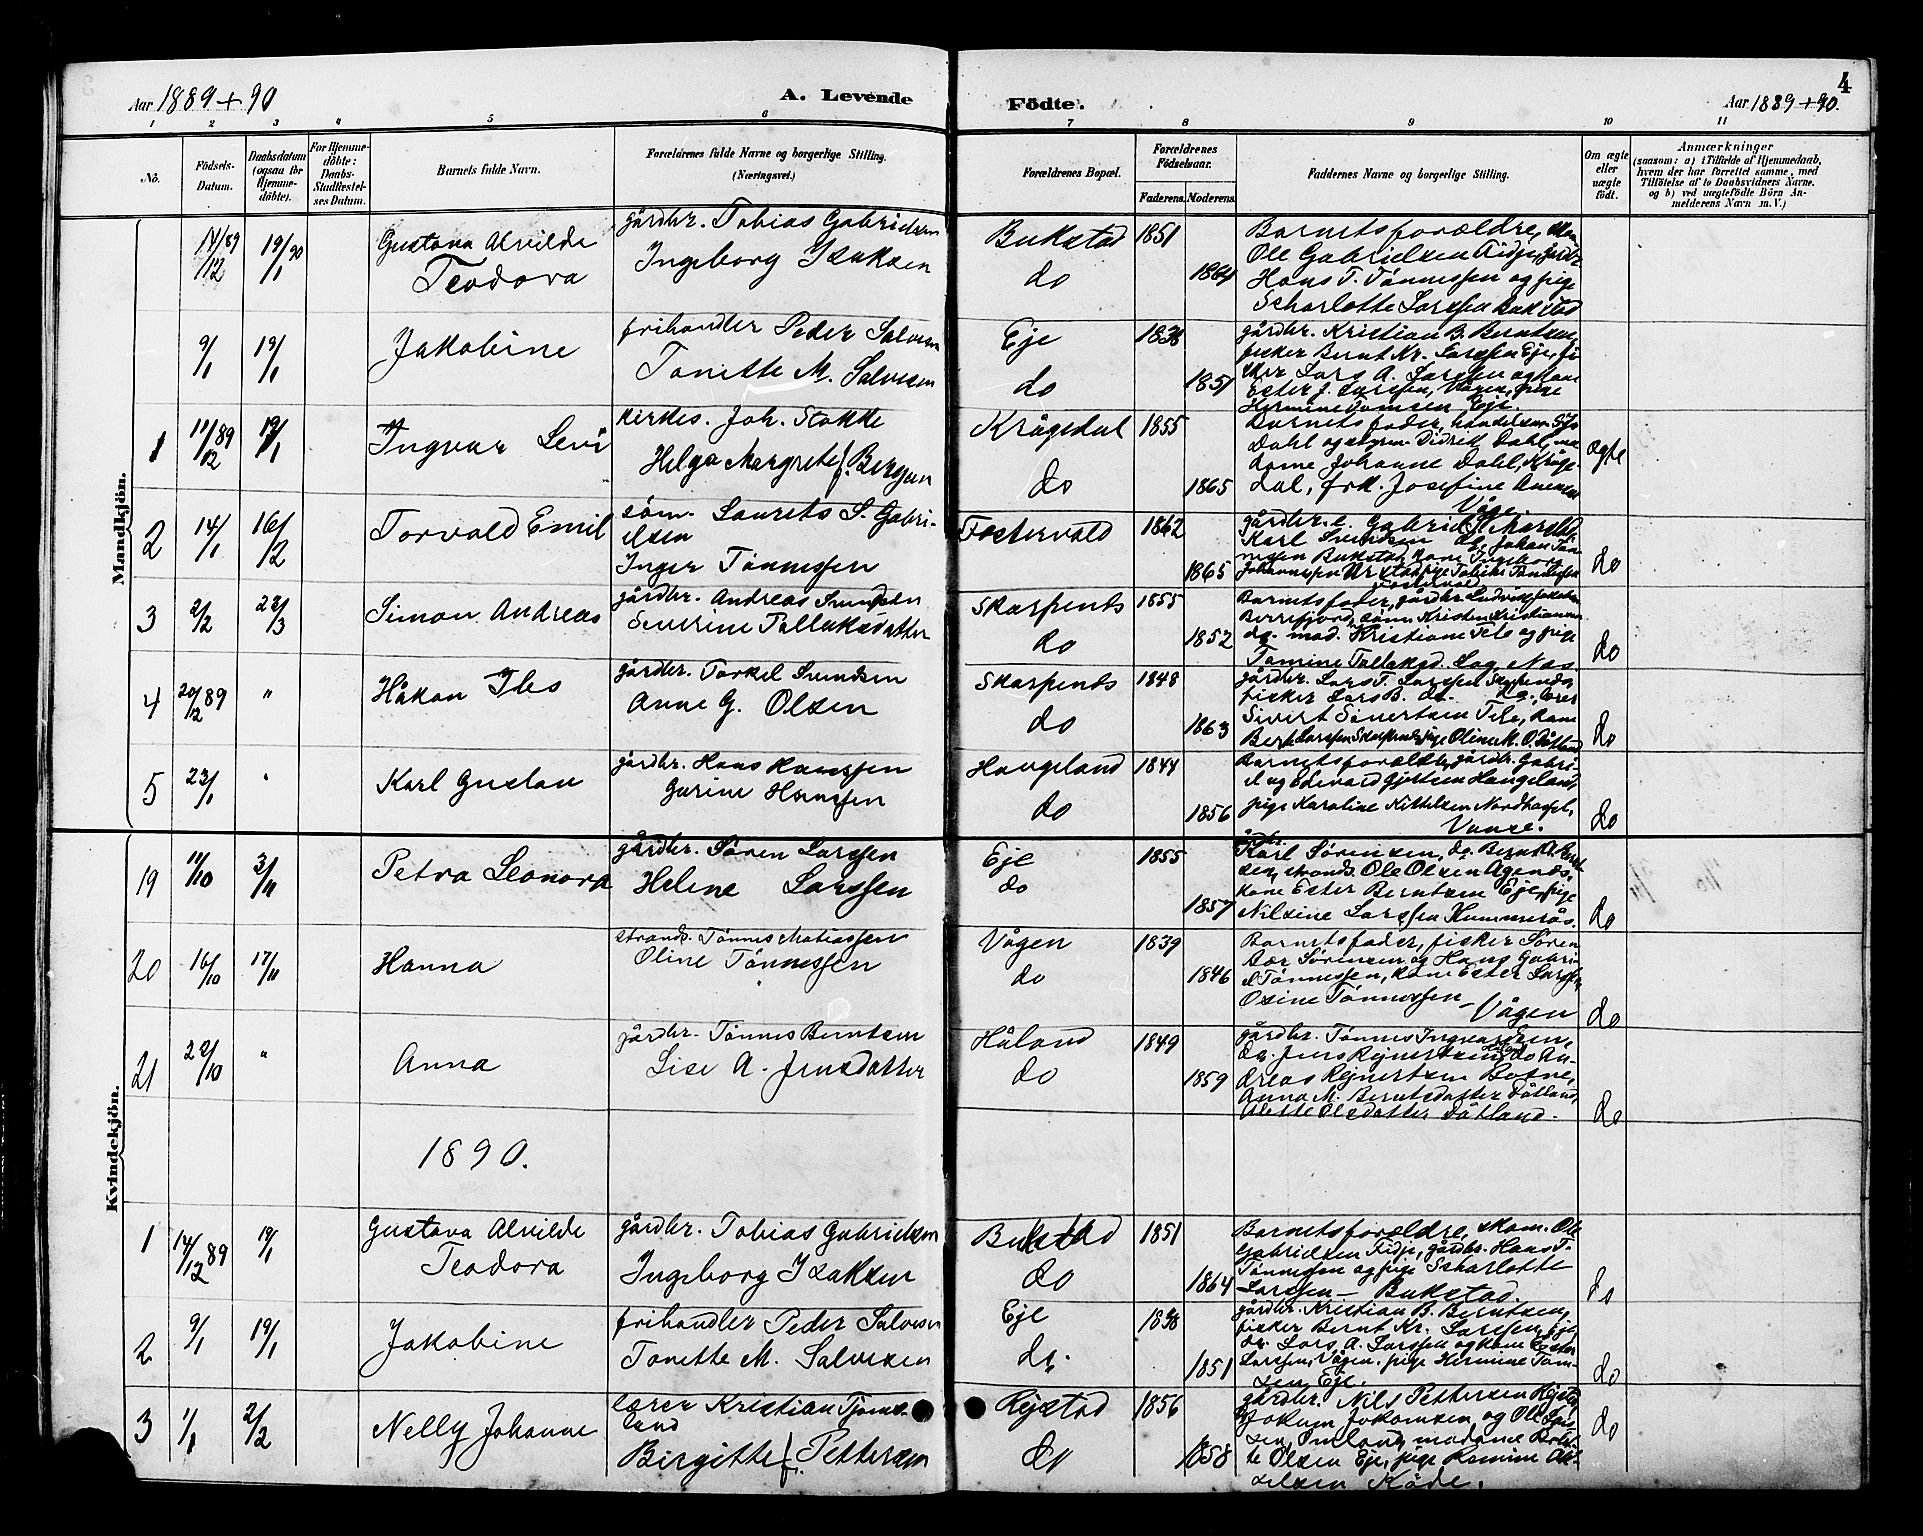 4
Aar 1889 + 90 A. Levende Födte. Aar 1889 + 90.
1 2 3 4 5 6 7 8 9 10 11
No.
Födsels-
Datum.
Daabsdatum
(ogsaa for
Hjemme-
döbte).
For Hjemme-
döbte:
Daabs-
Stadfæstel-
ses Datum.
Barnets fulde Navn.
Forældrenes fulde Navne og borgerlige Stilling.
(Næringsvei.)
Forældrenes Bopæl.
Forældrenes
Födselsaar.
Faderens. Moderens.
Faddernes Navne og borgerlige Stilling.
Om ægte
eller
uægte
født.
Anmærkninger
(saasom: a) i Tilfælde af Hjemmedaab,
hvem der har forrettet samme, med
Tilföielse af to Daabsvidners Navne.
og b) ved uægtefödte Börn An-
melderens Navn m. V.)
Mandkjön.
14/12 89 19/1 90
Gustava Alvilde
Teodora
gårdbr. Tobias Gabrielsen
Ingeborg Isaksen
Bukstad
do
1851
1864
Barnets forældre,
Ole Gabrielsen Fidje,
Hans T. Tønnessen og pige
Scharlotte Larssen Bukstad
9/1 19/1
Jakobine
frihandler Peder Salvesen
Tonette M. Salvesen
Eje
do
1838
1851
gårdbr. Kristian B. Berntsen,
fisker Bernt Kr. Larssen Eje, fi-
sker Lars A. Larssen og kone
Ester J. Larssen, Vågen, pige
Hermine Tomsen, Eje.
1 11/12 89 19/1
Ingvar Levi
kirkes. Joh. Stokke
Helga Margrete f. Bergjen
Krågedal
do
1855
1865
Barnets fader, handelsm.
Dahl og Didrik Dahl, ma-
dame Johanne Dahl, Kråge-
dal, frk. Josefine
Våge.
ægte
2 14/1 16/2
Torvald Emil
søm. Laurets S. Gabri-
elsen
Inger Tønnessen
Fostervold
1862
1865
gårdbr. e. Gabriel
Karl Svendsen Johan Tøn-
nesen Bukstad, kone Ingeborg
do
3 2/2 23/3
Simon Andreas
gårdbr. Andreas Svendsen
Severine Tallaksdatter
Skarpenes
do
1855
1852
Barnets fader, gårdbr. Ludvik
Berrefjord, sønn Kristen Kristiansen
do. mad. Kristiane Tele og pige
Tomine Tallaksd. Log, Næs
do
4 20/12 89 "
Håkon Iles
gårdbr. Torkel Svendsen
Anne G. Olsen
Skarpenes
do
1848
1863
gårdbr. Lars T. Larssen Skarpenes,
fisker Lars B. do. lærer
Sivert Sivertsen Tele, kone
Berte Larssen Skarpenes, pige Oline M. O. Dåtland
do
5 23/1 "
Karl Gustav
gårdbr. Hans Hanssen
Gurine Hanssen
Haugeland
do
1844
1856
Barnets forældre, gårdbr. Gabri-
el og Edevard Gjertsen Haugeland,
pige Karoline Kittelsen Nordhassel,
Vanse.
do
Kvindekjön.
19 11/10 3/11
Petra Leonora
gårdbr. Søren Larssen
Helene Larssen
Eje
do
1855
1857
gårdbr.
Karl Sørensen, do. Bernt A. Bernt-
sen, strands. Ole Olsen Agenes,
kone Ester Berntsen Eje, pige
Nilsine Larssen Hummerås.
do
20 16/10 17/11
Hanna
strands. Tønnes Matiassen
Oline Tønnessen
Vågen
do
1839
1846
Barnets fader, fisker Søren
Bær Sørensen og Hans Gabri-
el Tønnessen, kone Ester Larssen,
Osine Tønnessen —
Vågen
do
21 22/10 "
Anna
gårdbr. Tønnes Berntsen
Lise A. Jensdatter
Håland
do
1849
1859
gårdbr. Tønnes Ingvaldsen,
do. Jens Rejnertsen Håland, do An-
dreas Rejnertsen Botne,
Anna M. Berntsdatter Dåtland,
Alette Olsdatter Dåtland.
do
1890.
1 14/12 89 19/1
Gustava Alvilde
Teodora
gårdbr. Tobias Gabrielsen
Ingeborg Isaksen
Bukstad
do
1851
1864
Barnets forældre, skom. Ole
Gabrielsen Fidje, gårdbr. Hans T.
Tønnessen og pige Scharlotte
Larssen — Bukstad.
do
2 9/1 19/1
Jakobine
frihandler Peder Salvesen
Tonette M. Salvesen
Eje
do.
1838
1851
gårdbr. Kristian B. Berntsen,
fisker Bernt Kr. Larssen, Eje,
do. Lars A. Larssen og kone Ester
Larssen, Vågen. pige Hermine Tom-
sen, Eje.
do
3 1/1 2/2
Nelly Johanne
lærer Kristian Tjoms-
land
Birgitte f. Pettersen
Rejstad
do
1856
1858
gårdbr. Nils Pettersen Rejstad
Jokum Jokomsen, og Ole
sen, Omland, madame
te Olsen Eje, pige Romine
selsen Kåde.
do